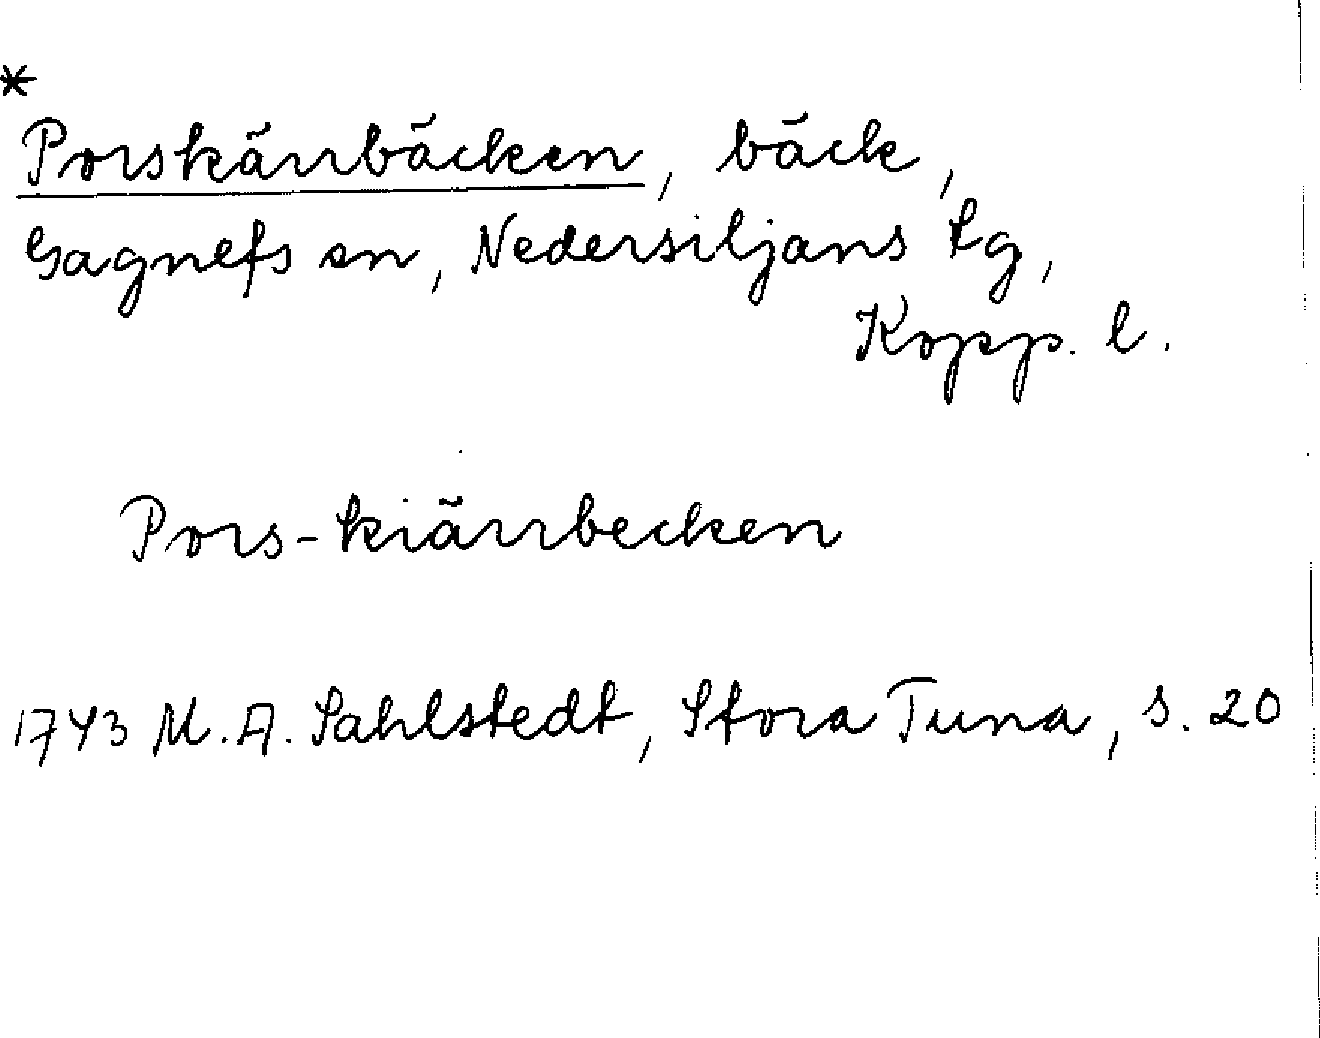 *
Porskärrbäcken, bäck,
Gagnefs sn, Nedersiljans tg,
Kopp. l.
Pors-kiärrbecken
1743 M. A. Sahlstedt, Stora Tuna, s. 20